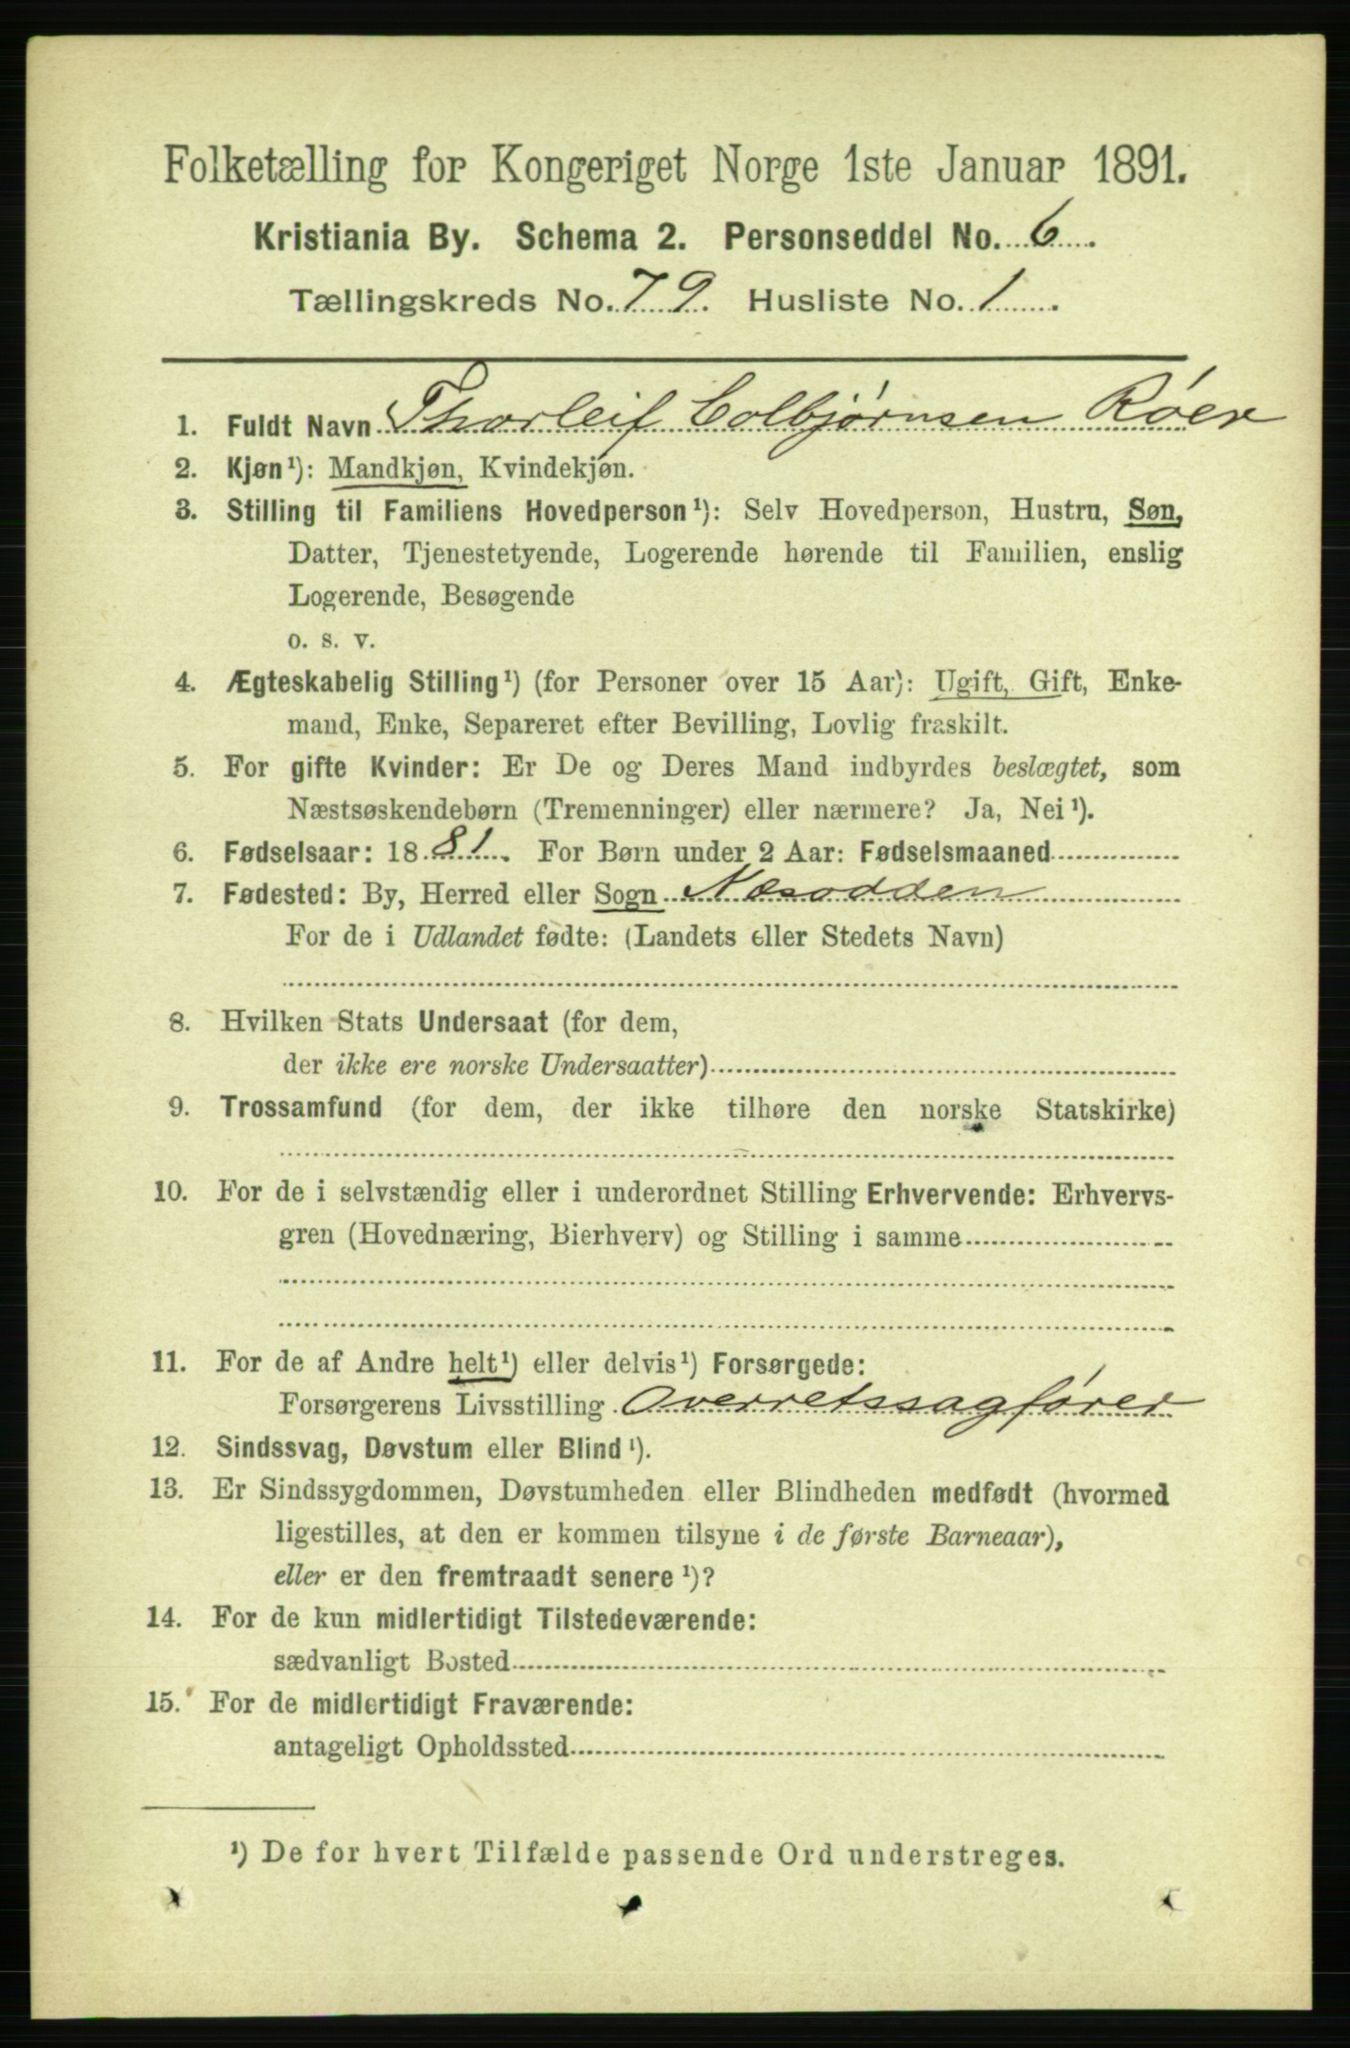 Folketælling for Kongeriget Norge 1ste Januar 1891.
Kristiania By. Schema 2. Personseddel No. 6.
Tællingskreds No. 79. Husliste No. 1.
1. Fuldt Navn Thorleif Colbjørnsen Róer
2. Kjøn¹): Mandkjøn, Kvindekjøn.
3. Stilling til Familiens Hovedperson¹): Selv Hovedperson, Hustru, Søn,
Datter, Tjenestetyende, Logerende hørende til Familien, enslig
Logerende, Besøgende
o. s. v.
4. Ægteskabelig Stilling¹) (for Personer over 15 Aar): Ugift, Gift, Enke-
mand, Enke, Separeret efter Bevilling, Lovlig fraskilt.
5. For gifte Kvinder: Er De og Deres Mand indbyrdes beslægtet, som
Næstsøskendebørn (Tremenninger) eller nærmere? Ja, Nei¹).
6. Fødselsaar: 1881. For Børn under 2 Aar: Fødselsmaaned
7. Fødested: By, Herred eller Sogn Næsodden
For de i Udlandet fødte: (Landets eller Stedets Navn)
8. Hvilken Stats Undersaat (for dem,
der ikke ere norske Undersaatter)
9. Trossamfund (for dem, der ikke tilhøre den norske Statskirke)
10. For de i selvstændig eller i underordnet Stilling Erhvervende: Erhvervs-
gren (Hovednæring, Bierhverv) og Stilling i samme
11. For de af Andre helt¹) eller delvis¹) Forsørgede:
Forsørgerens Livsstilling Overretssagfører
12. Sindssvag, Døvstum eller Blind¹).
13. Er Sindssygdommen, Døvstumheden eller Blindheden medfødt (hvormed
ligestilles, at den er kommen tilsyne i de første Barneaar),
eller er den fremtraadt senere¹)?
14. For de kun midlertidigt Tilstedeværende:
sædvanligt Bosted
15. For de midlertidigt Fraværende:
antageligt Opholdssted
¹) De for hvert Tilfælde passende Ord understreges.